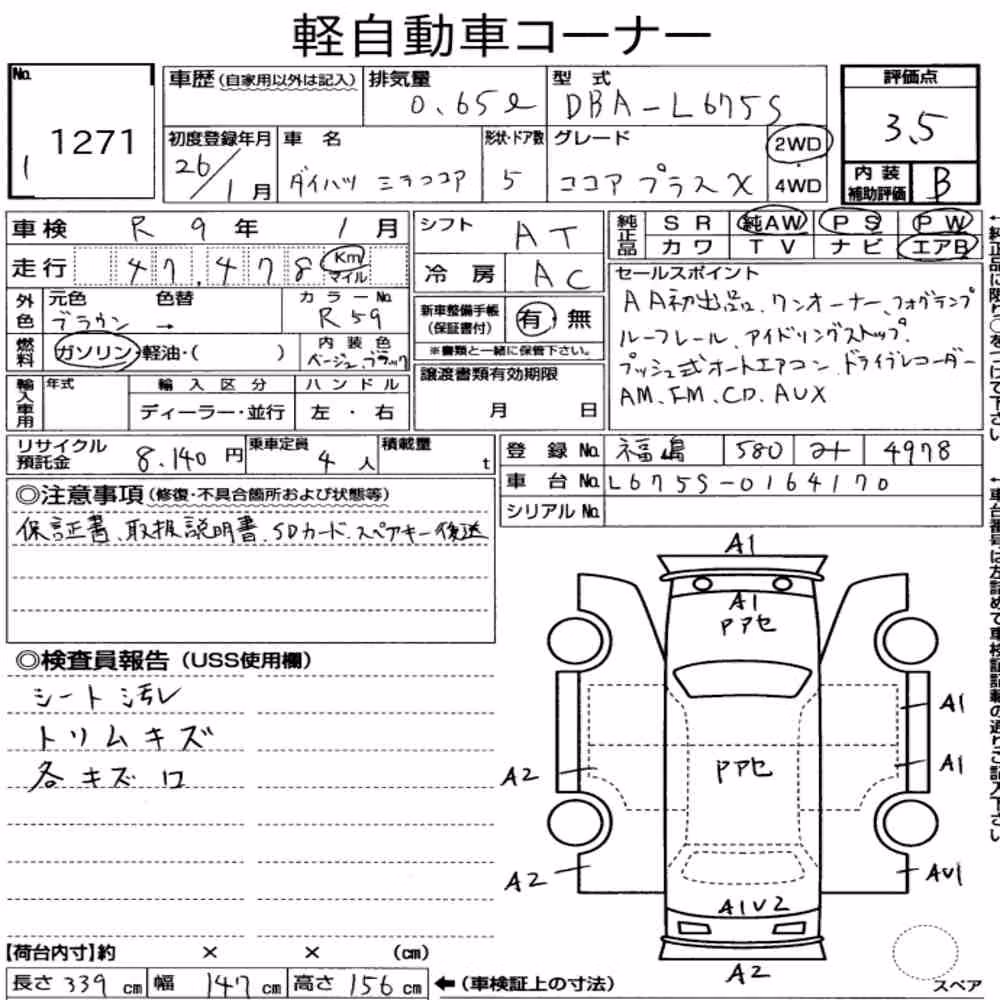 軽自動車コーナー
No. 1271
1
車歴(自家用以外は記入) 排気量 0.65ℓ 型式 DBA-L675S 評価点 3.5
初度登録年月 26/1月 車名 ダイハツ ミラココア 形状・ドア数 5 グレード ココア プラス X 2WD・4WD 内装補助評価 B
車検 R 9年 1月 シフト AT 純正品 SR 純AW PS PW
カワ TV ナビ エアB
走行 47,478 Km マイル 冷房 AC
外色 元色 ブラウン 色替 → カラーNo. R59
新車整備手帳(保証書付) 有・無
※書類と一緒に保管下さい。
燃料 ガソリン・軽油・( ) 内装色 ベージュ、ブラック
セールスポイント
AA初出品、ワンオーナー、フォグランプ
ルーフレール、アイドリングストップ、
プッシュ式オートエアコン、ドライブレコーダー
AM、FM、CD、AUX
輸入車用 年式 輸入区分 ディーラー・並行 ハンドル 左・右
譲渡書類有効期限
月 日
リサイクル預託金 8,140円 乗車定員 4人 積載量 t
登録No. 福島 580 4978
車台No. L675S-0164170
シリアルNo.
◎注意事項(修復・不具合箇所および状態等)
保証書、取扱説明書、SDカード、スペアキー後送
◎検査員報告(USS使用欄)
シート汚レ
トリムキズ
各キズ ロ
A1
A1
Pアセ
A1
A1
PアセA2
A2
AU1
A1U2
A2
スペア
【荷台内寸】約 × × (cm)
長さ 339 cm 幅 147 cm 高さ 156 cm ←(車検証上の寸法)
←純正品に限り○をつけて下さい
←車台番号は左詰めで車検証記載の通りご記入下さい